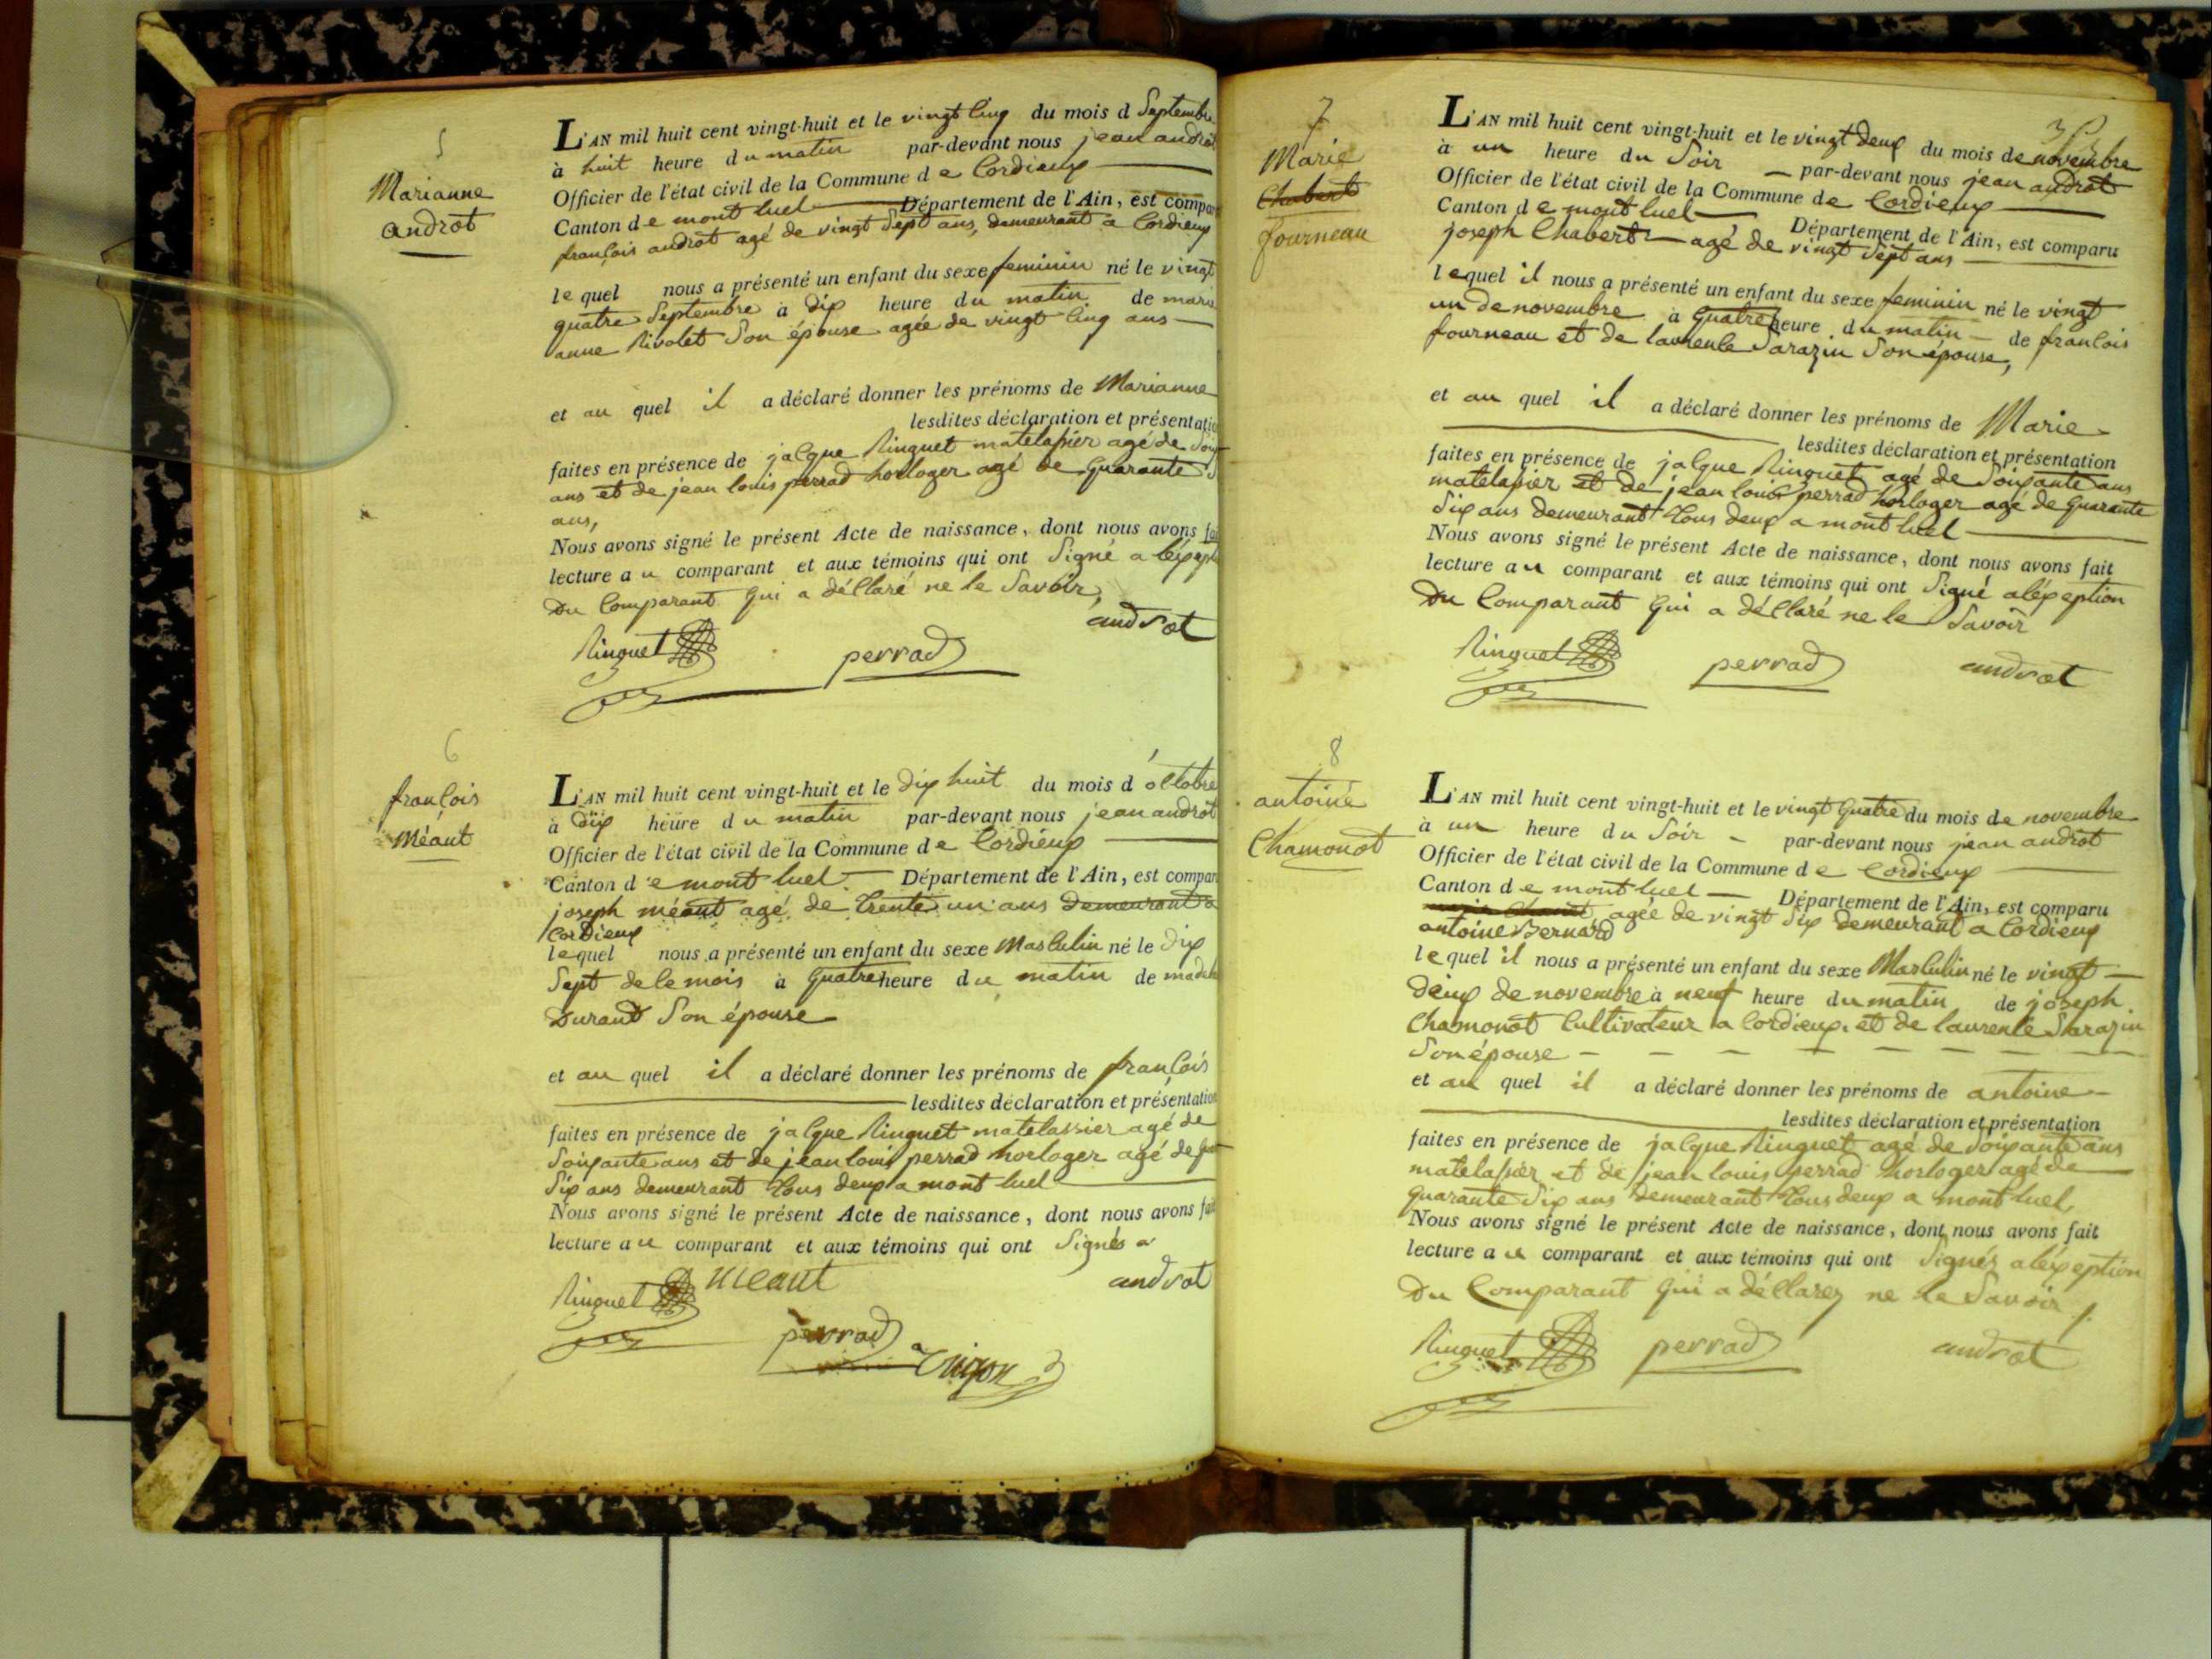 5
Marianne
androt
L'AN mil huit cent vingt-huit et le vingt cinq du mois d Septembre
à huit heure du matin par-devant nous jean androt
Officier de l'état civil de la Commune de Cordieux
Canton de mont luel Département de l'Ain, est compar
françois androt agé de vingt Sept ans, demeurant a Cordieux
lequel nous a présenté un enfant du sexe feminin né le vingt
quatre Septembre à dix heure du matin de marie
anne Rivolet Son épouse agée de vingt cinq ans
et au quel il a déclaré donner les prénoms de Marianne
lesdites déclaration et présentatio
faites en présence de jacque Ringuet matelassier agé de
ans et de jean louis perrad horloger agé de quarante
ans,
Nous avons signé le présent Acte de naissance, dont nous avons fai
lecture au comparant et aux témoins qui ont Signé a
Du Comparant qui a déclaré ne le Savoir,
androt
Ringuet perrad
6
françois
méant
L'AN mil huit cent vingt-huit et le dix huit du mois d'octobre
à dix heure du matin par-devant nous jean androt
Officier de l'état civil de la Commune de Cordieux
Canton de mont luel Département de l'Ain, est compar
joseph méant agé de trente un ans Demeurant a
Cordieux
lequel nous a présenté un enfant du sexe Masculin né le dix
Sept de ce mois à quatre heure du matin de
Durand Son épouse
et au quel il a déclaré donner les prénoms de françois
lesdites déclaration et présentation
faites en présence de jacque Ringuet matelassier agé de
Soixante ans et de jean louis perrad horloger agé de
Six ans demeurant tous deux a mont luel
Nous avons signé le présent Acte de naissance, dont nous avons fait
lecture au comparant et aux témoins qui ont Signés
Ringuet méant androt
perrad
7
Marie
Chabert
fourneau
L'AN mil huit cent vingt-huit et le vingt deux du mois de novembre
à un heure du Soir par-devant nous jean androt
Officier de l'état civil de la Commune de Cordieux
Canton de mont luel Département de l'Ain, est comparu
joseph Chabert agé de vingt Sept ans
lequel il nous a présenté un enfant du sexe feminin né le vingt
un de novembre à quatre heure du matin de françois
fourneau et de laurence Sarazin Son épouse,
et au quel il a déclaré donner les prénoms de Marie
lesdites déclaration et présentation
faites en présence de jacque Ringuet agé de Soixante ans
matelassier et de jean louis perrad horloger agé de quarante
Six ans demeurant tous deux a mont luel
Nous avons signé le présent Acte de naissance, dont nous avons fait
lecture au comparant et aux témoins qui ont Signé a léxception
Du Comparant qui a déclaré ne le Savoir
Ringuet perrad androt
8
antoine
Chamonot
L'AN mil huit cent vingt-huit et le vingt quatre du mois de novembre
à un heure du Soir par-devant nous jean androt
Officier de l'état civil de la Commune de Cordieux
Canton de mont luel Département de l'Ain, est comparu
agée de vingt Six demeurant a Cordieux
antoine Bernard
lequel il nous a présenté un enfant du sexe Masculin né le vingt
deux de novembre à neuf heure du matin de joseph
Chamonot Cultivateur a Cordieux et de laurence Sarazin
Son épouse
et au quel il a déclaré donner les prénoms de antoine
lesdites déclaration et présentation
faites en présence de jacque Ringuet agé de Soixante ans
matelassier et de jean louis perrad horloger agé de
quarante Six ans demeurant tous deux a mont luel,
Nous avons signé le présent Acte de naissance, dont nous avons fait
lecture au comparant et aux témoins qui ont Signés a léxception
Du Comparant qui a déclarez ne le Savoir
Ringuet perrad androt